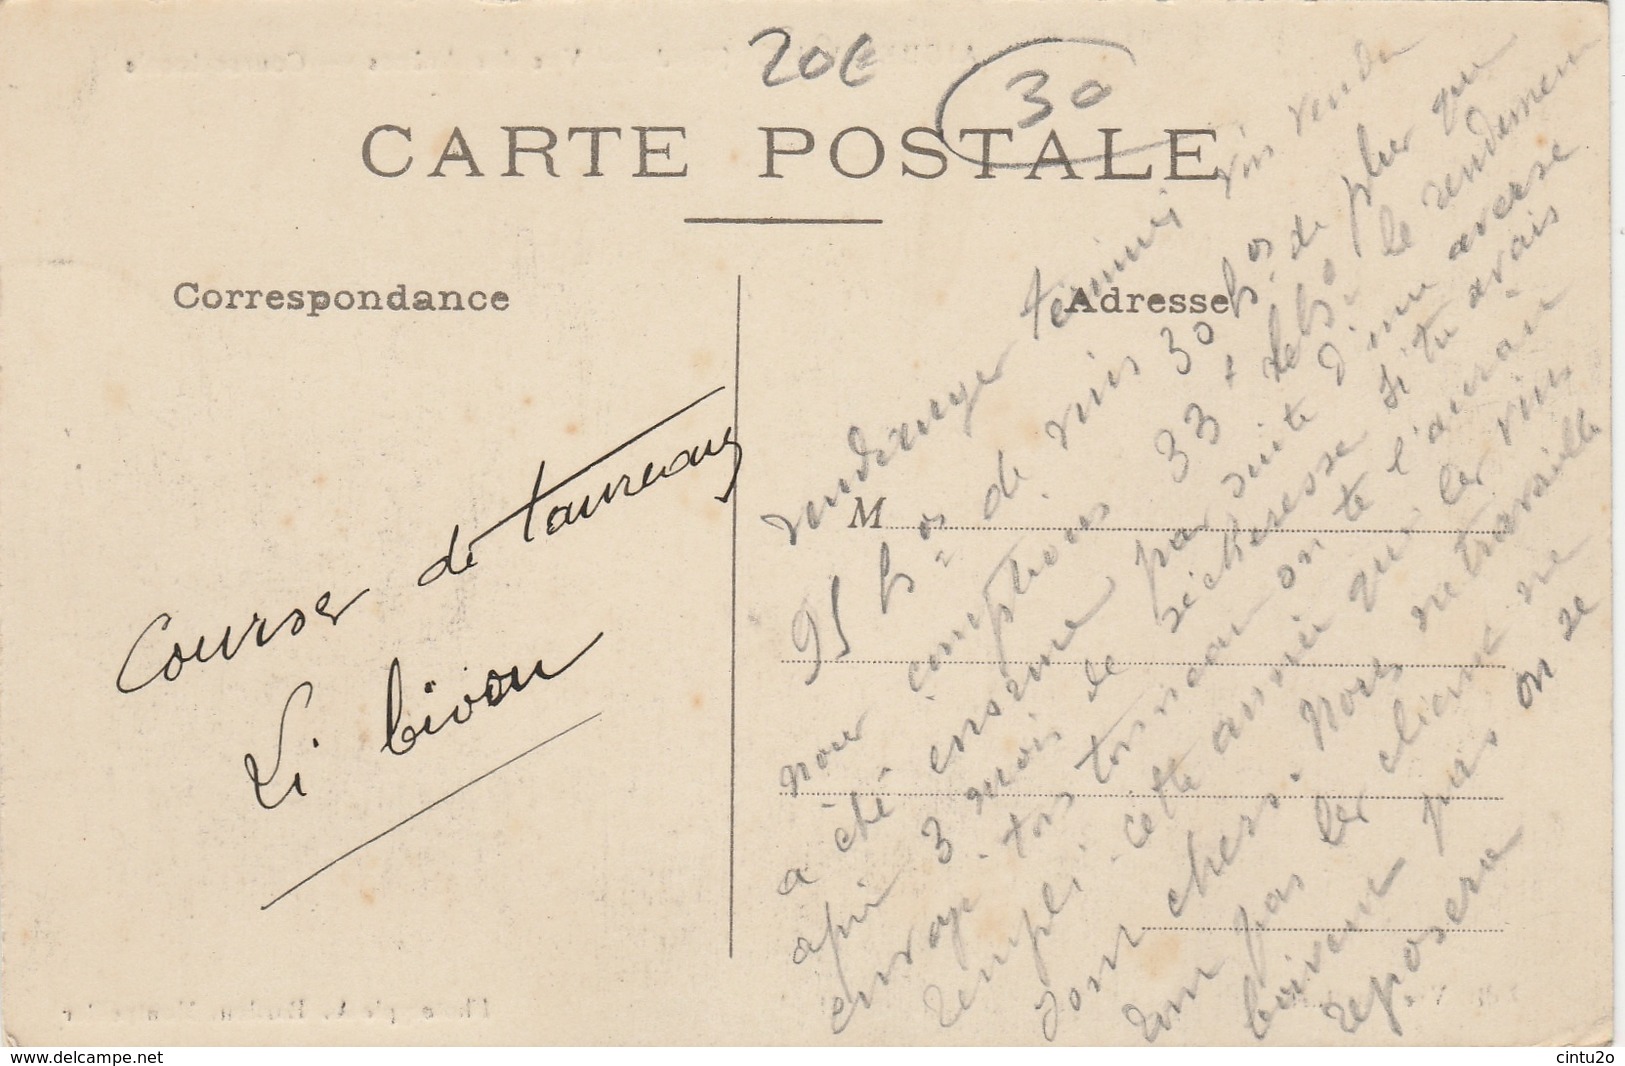 20€
30
CARTE POSTALE
Correspondance
Adresse
M
Courses de taureaux
Li biòou
vendanges terminés vin vendu
95 hos de vins 30 hos de plus que
nous comptions 33 + debo le rendement
a été énorme par suite d'une averse
après 3 mois de sécheresse si tu avais
envoyé ton tonneau on te l'aurait
rempli cette année que les vins
sont chers. Nous ne travaillons
pas les clients ne
boivent pas on se
reposera
www.delcampe.net
cintu2o